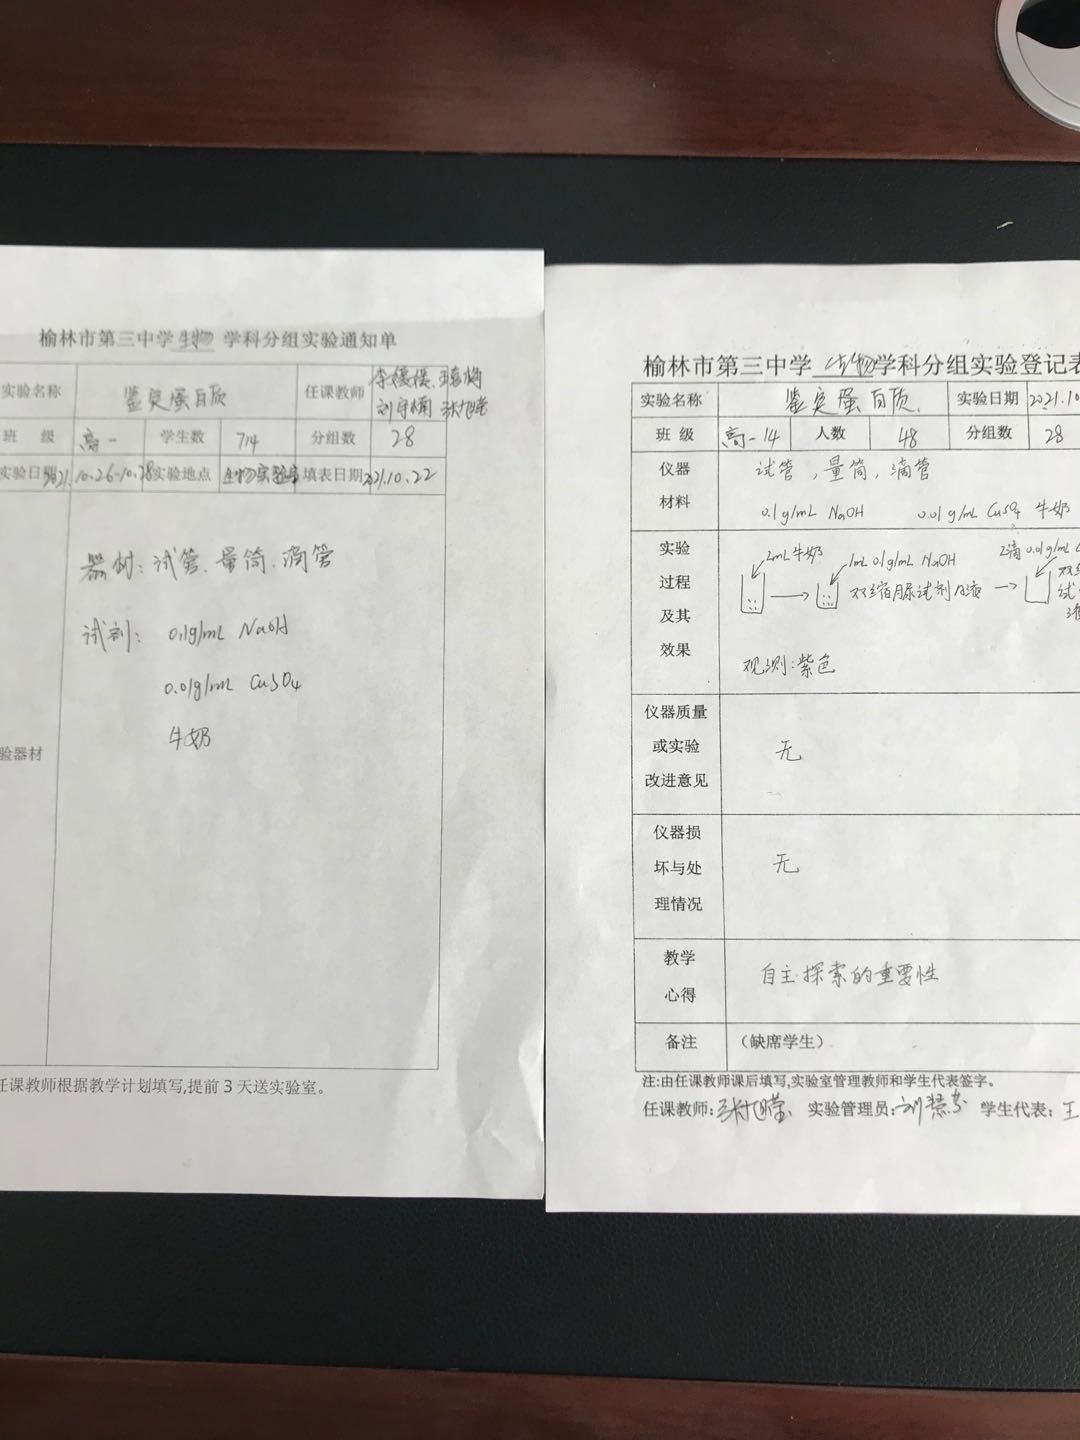 榆林市第三中学 生物 学科分组实验通知单
实验名称 鉴定蛋白质 任课教师
班 级 高一 学生数 714 分组数 28
实验日期 2021.10.26-10.28 实验地点 生物实验室 填表日期 2021.10.22
验器材
器材：试管、量筒、滴管
试剂： 0.1g/mL NaOH
0.01g/mL CuSO4
牛奶
任课教师根据教学计划填写,提前 3 天送实验室。
榆林市第三中学 生物 学科分组实验登记表
实验名称 鉴定蛋白质 实验日期 2021.10
班 级 高一14 人数 48 分组数 28
仪器材料 试管，量筒，滴管
0.1g/mL NaOH 0.01g/mL CuSO4 牛奶
实验过程及其效果
2mL牛奶 1mL 0.1g/mL NaOH 2滴 0.01g/mL
双缩脲试剂A液
观测:紫色
仪器质量或实验改进意见 无
仪器损坏与处理情况 无
教学心得 自主探索的重要性
备注 （缺席学生）
注:由任课教师课后填写,实验室管理教师和学生代表签字。
任课教师: 实验管理员: 学生代表: 王